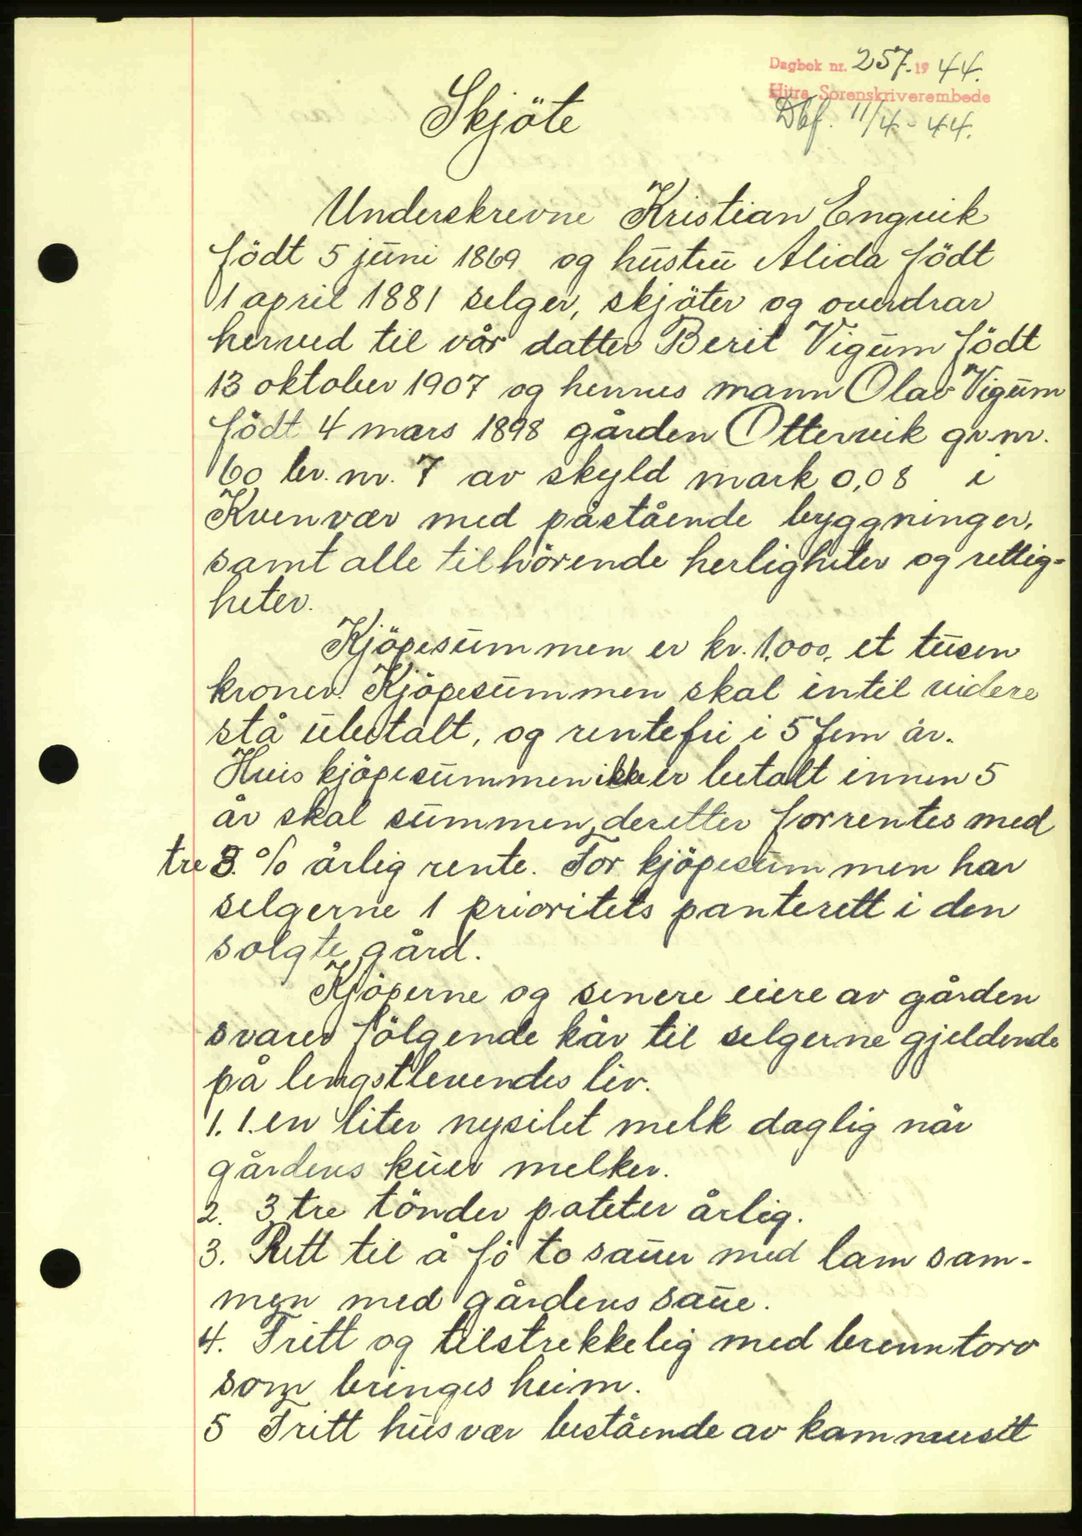 Dagbok nr. 257. 19 44.
Hitra Sorenskriverembede
Dbf. 11/4 - 44.
Skjöte
Underskrevne Kristian Engvik
födt 5 juni 1869 og hustru Alida födt
1 april 1881 selger, skjöter og overdrar
herved til vår datter Berit Vigum födt
13 oktober 1907 og hennes mann Olav Vigum
födt 4 mars 1898 gården Ottervik gr.nr.
60 br. nr. 7 av skyld mark 0,08 i
Kvenvær med påstående byggninger,
samt alle tilhörende herligheter og rettig-
heter.
Kjöpesummen er kr. 1.000, et tusen
kroner. Kjöpesummen skal intil videre
stå ubetalt, og rentefri i 5 fem år.
Hvis kjöpesummen ikke er betalt innen 5
år skal summen deretter forrentes med
tre 3. % årlig rente. For kjöpesummen har
selgerne 1 prioritets panterett i den
solgte gård.
Kjöperne og senere eiere av gården
svarer fölgende kår til selgerne gjeldende
på lengstlevendes liv.
1. 1. en liter nysilet melk daglig når
gårdens kuer melker.
2. 3 tre tönder poteter årlig.
3. Rett til å fö to sauer med lam sam-
men med gårdens saue.
4. Fritt og tilstrekkelig med brenntorv
som bringes heim.
5 Fritt husvær bestående av kammerset